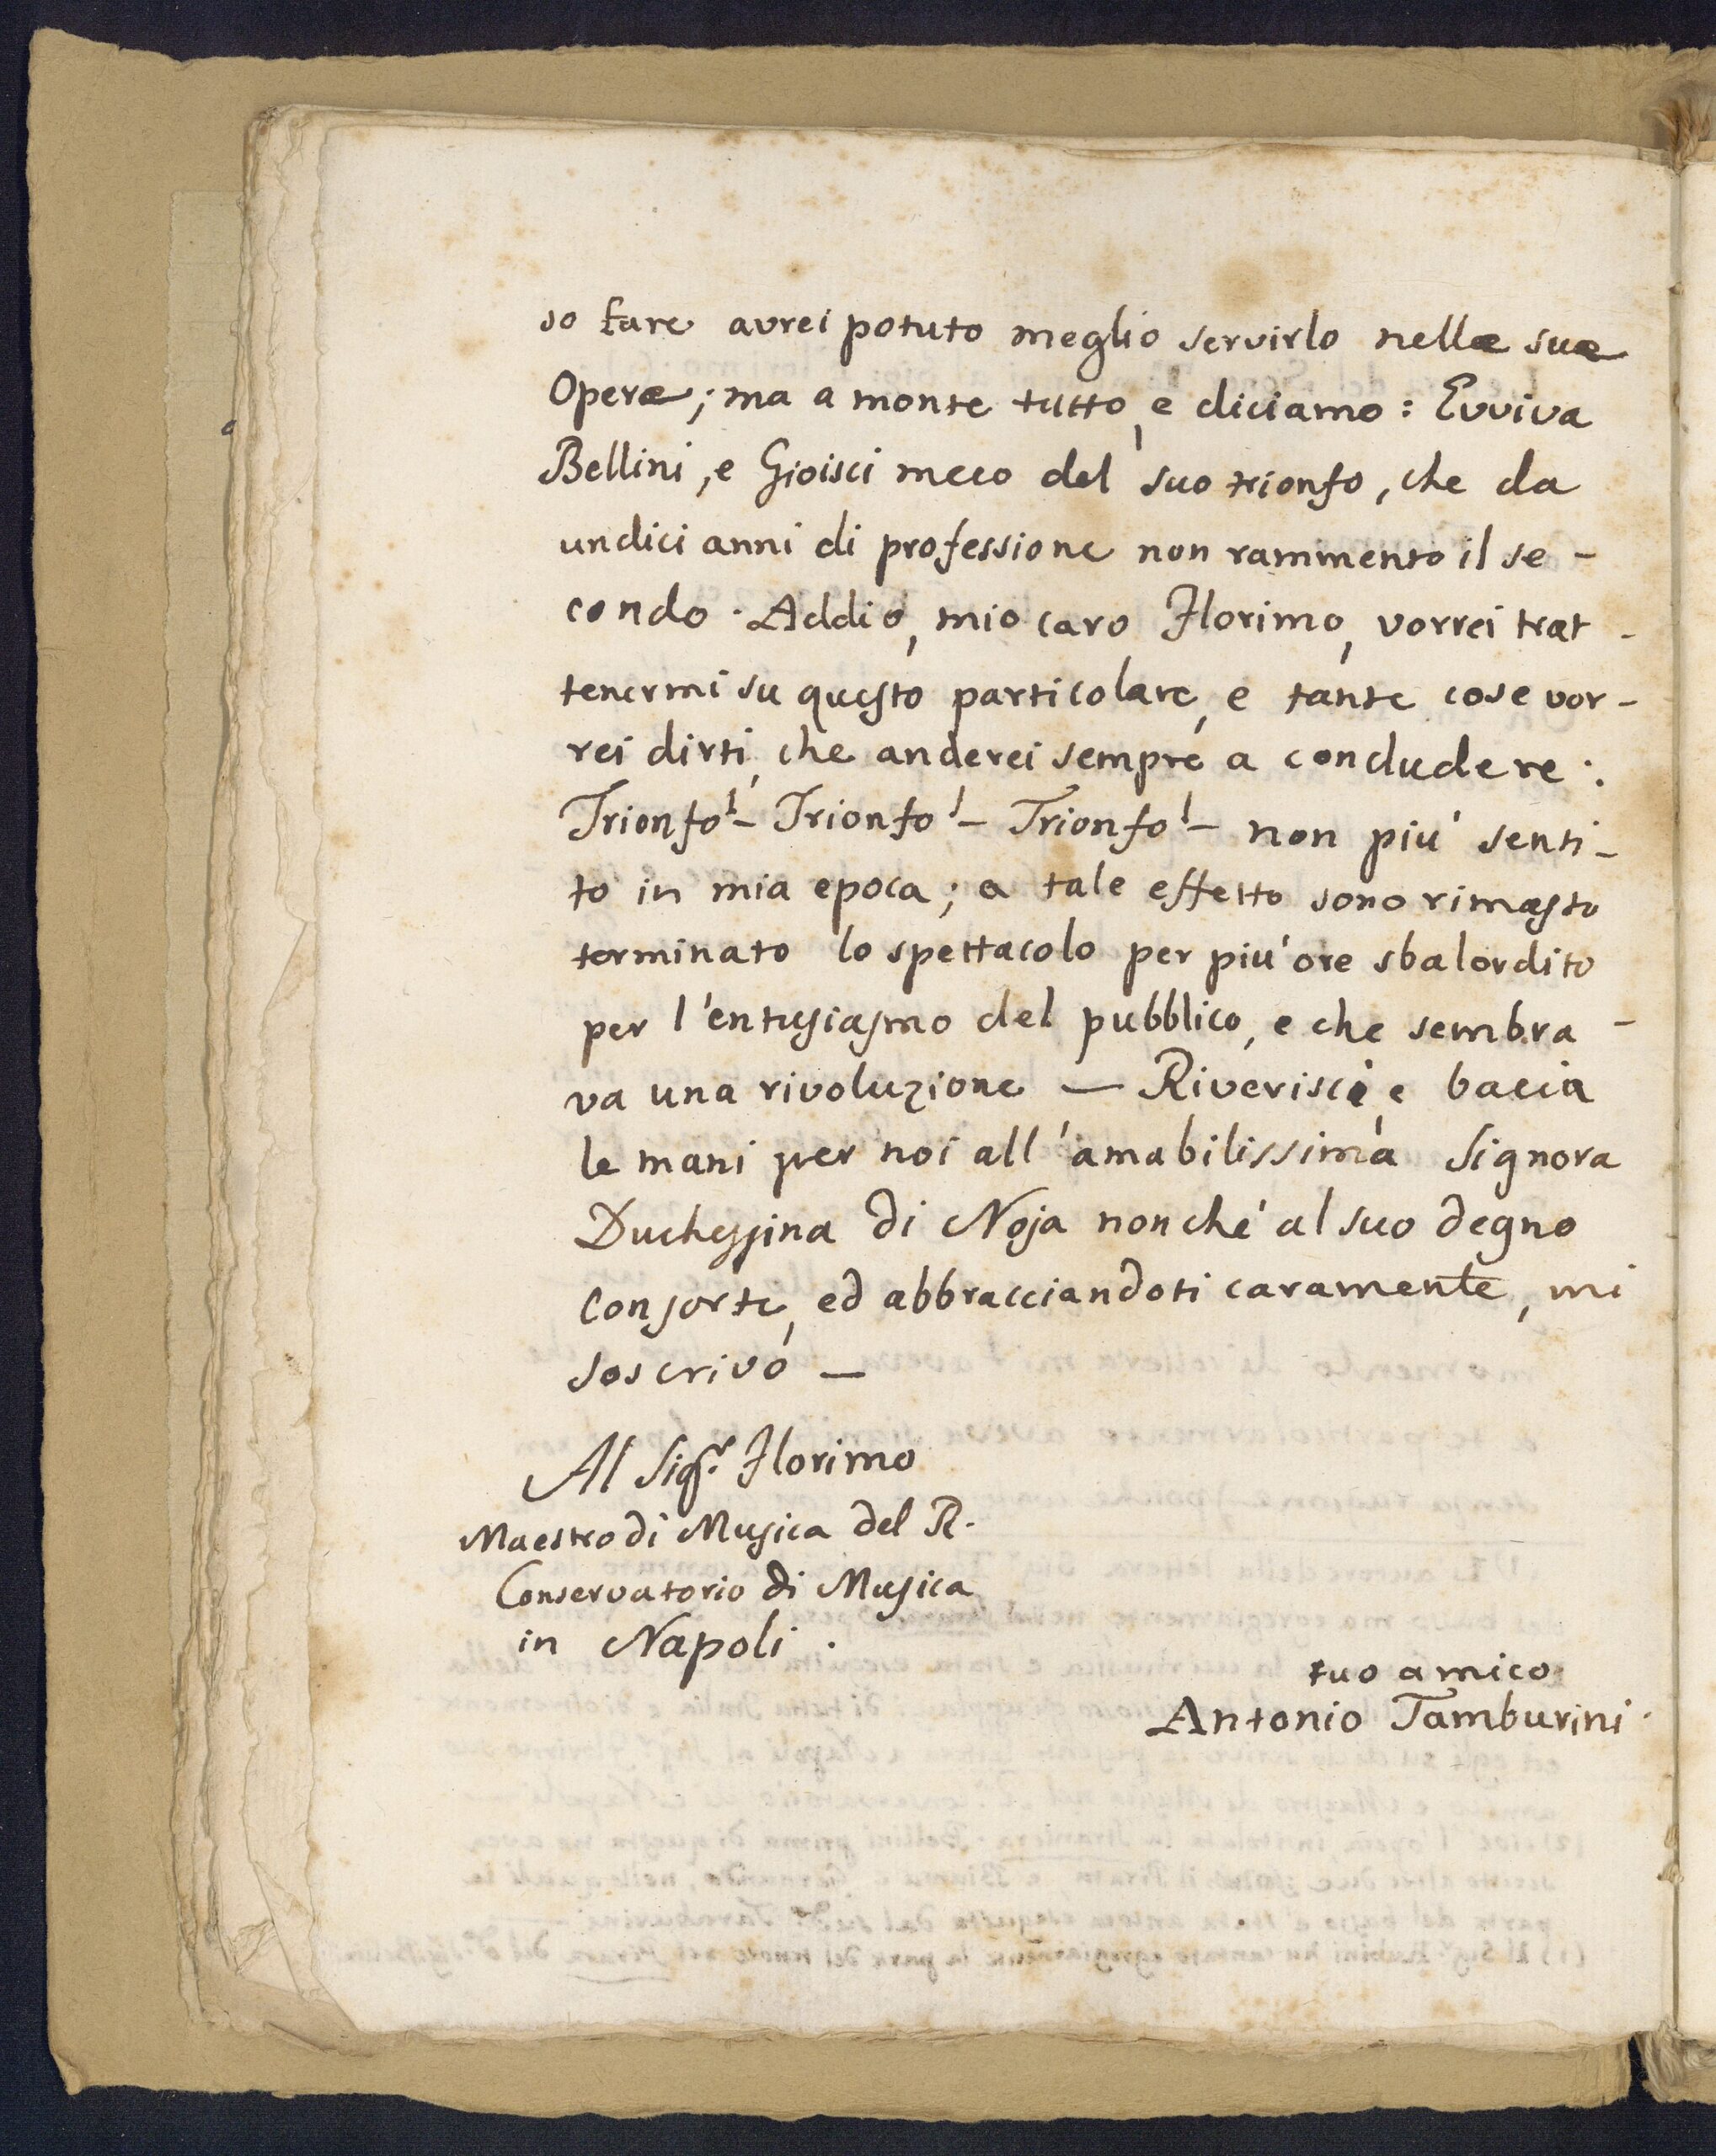 so fare avrei potuto meglio servirlo nelle sue
Opere; ma a monte tutto, e diciamo: Evviva
Bellini, e Gioisci meco del suo trionfo, che da
undici anni di professione non rammento il se-
condo. Addio, mio caro Florimo, vorrei trat-
tenermi su questo particolare, e tante cose vor-
rei dirti, che anderei sempre a concludere:
Trionfo!- Trionfo!- Trionfo!- non più senti-
to in mia epoca; a tale effetto sono rimasto
terminato lo spettacolo per più ore sbalordito
per l'entusiasmo del pubblico, e che sembra-
va una rivoluzione — Riverisci, e bacia
le mani per noi all'amabilissima Signora
Duchessina di Noja nonché al suo degno
Consorte, ed abbracciandoti caramente, mi
soscrivo —
Al Sigr. Florimo
Maestro di Musica del R.
Conservatorio di Musica
in Napoli.
tuo amico
Antonio Tamburini.